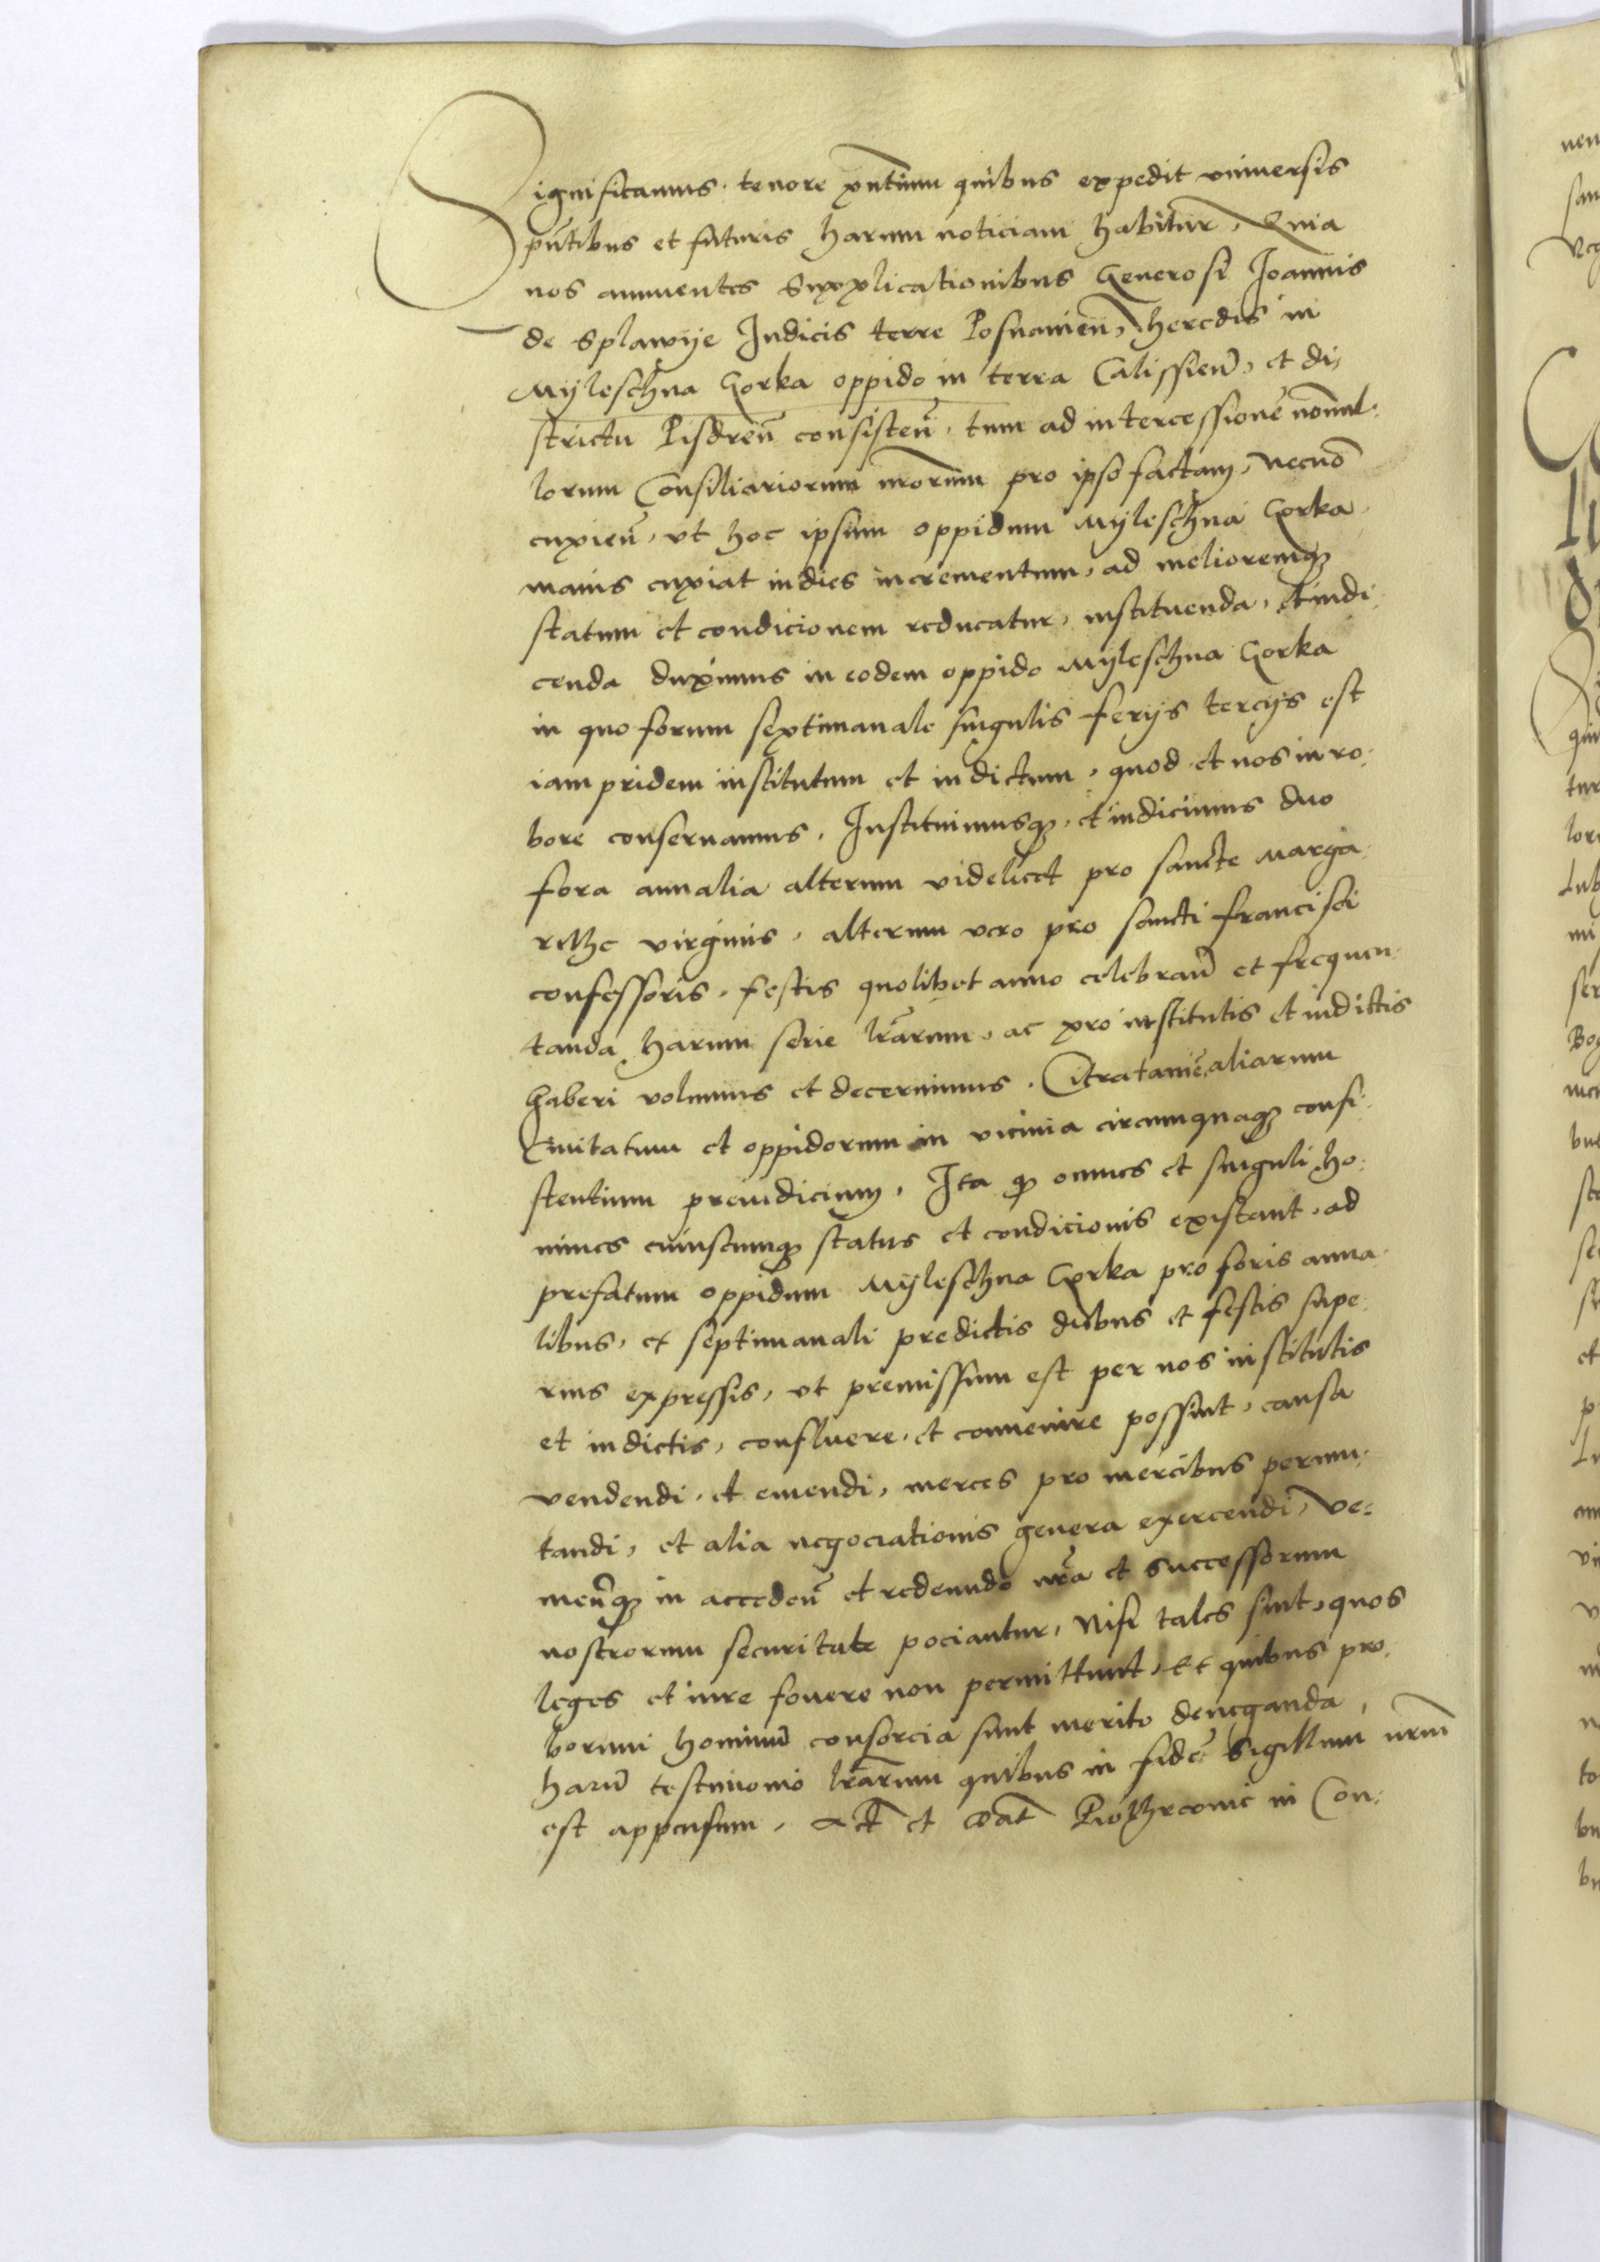 Significamus tenore pñtium quibus expedit universis
pñtibus et futuris harum noticiam habitur̃, Quia
nos annuentes Supplicationibus Generosi Joannis
de Splawye Judicis terre Posnanieñ, heredis in
Myleschna Gorka oppido in terra Calissieñ, et di,
strictu Pisdreñ consisteñ, tum ad intercessionẽ nonnul,
lorum Consiliariorum nrorum pro ipso factam, necnõ
cupieñ, ut hoc ipsum oppidum Myleschna Gorka
maius capiat indies incrementum, ad melioremq3
statum et condicionem reducatur, instituenda, et indi,
cenda duximus in eodem oppido Myleschna Gorka
in quo forum septimanale singulis ferijs tercijs est
iam pridem institutum et indictum, quod et nos in ro,
bore conservamus. Instituimusq3, et indicimus duo
fora annalia alterum videlicet pro sancte Marga,
rethe virginis, alterum vero pro sancti Francisci
confessoris, festis quolibet anno celebrañ et frequen,
tanda harum serie lrãrum, ac pro institutis et indictis
haberi volumus et decernimus. Citra tamẽ aliarum
Civitatum et oppidorum in vicinia circumquaq3 consi,
stentium preiudicium, Ita q3 omnes et singuli ho,
mines cuiuscumq3 status et condicionis existant, ad
prefatum oppidum Myleschna Gorka pro foris anna,
libus, et septimanali predictis diebus et festis supe,
rius expressis, ut premissum est per nos institutis
et indictis, confluere, et convenire possint, causa
vendendi, et emendi, merces pro mercibus permu,
tandi, et alia negociationis genera exercendi, ve,
meñq3 in accedeñ et redeundo nrã et Successorum
nostrorum securitate pociantur, Nisi tales sint, quos
leges et iure fovere non permittunt, Et quibus pro,
borum hominũ consorcia sunt merito deneganda,
harũ testimonio lrãrum quibus in fidẽ Sigillum nrũm
est appensum, Act̃ et Dat̃ Piothrcovie in Con,